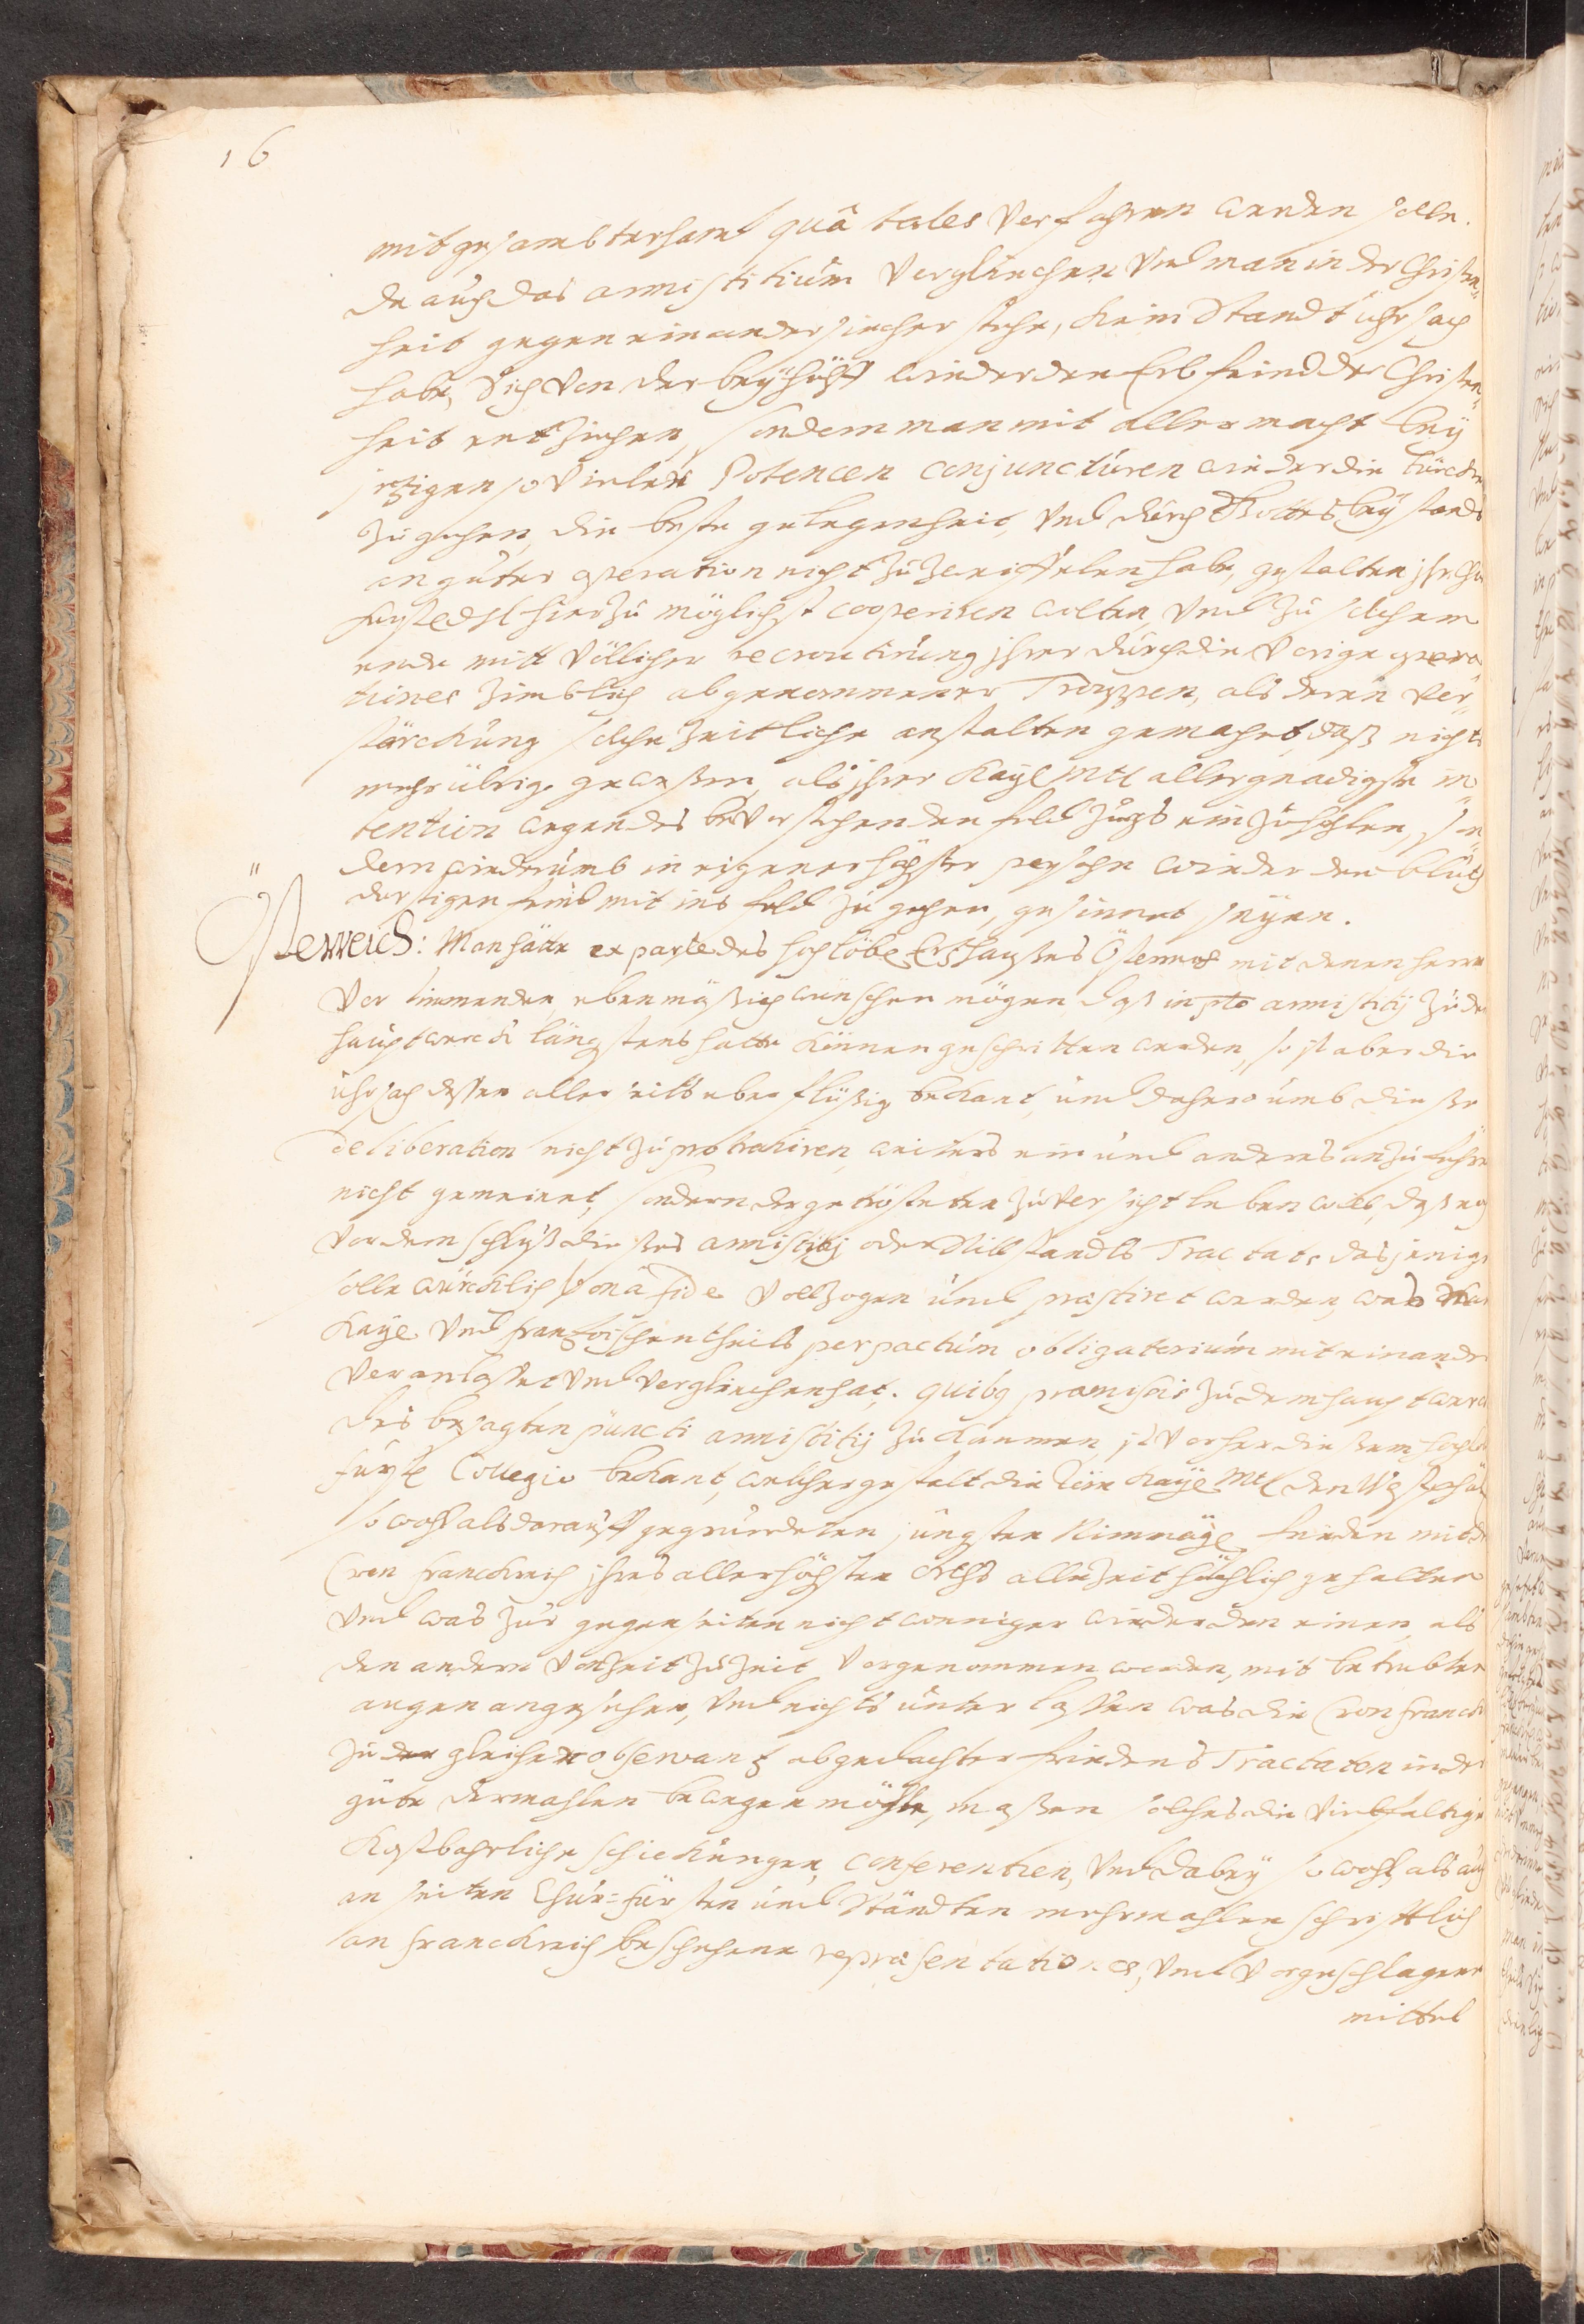 16
mit gesambter hand quâ tales verfahren werden solle.
da auch das armistitium verglichen und man in der Christen„
heit gegen einander sicher stehe, kein Standt uhrsach
habe, Sich von der beyhülff wieder den Erbfeind der Christen„
heit entziehen, sondern man mit aller macht bey
jetzigen so vieler Potencen conjuncturen wieder die türcken
zu gehen, die beste gelegenheit, und durch Gottes beystandt
an guter operation nicht zu zweiffelen habe, gestalten ihr Chur
fürstl dhl hierzu möglichst cooperiren wolten, und zu solchem
ende mitt völliger recroutirung ihrer durch die vorige opera
tiones zimblich abgenommener Trouppen, als deren ver„
stärckung solche zeitliche anstalten gemachet, daß nichts
mehr übrig gewesen, als ihrer Kayl Mtt allergnädigste in„
tention wegen des bevorstehenden feld zugs einzuhohlen, son„
dern wiederumb in eigener höchster persohn wieder den bluth
dürstigen feind mit ins feld zu gehen, gesinnet seyen.
Österreich: Man hätte ex parte des hochlöbl Ertzhaußes Österreich mit denen herren
vor stimmenden ebenmäßig wünschen mögen, daß in pto armistitij zu dem
hauptwerck längstens hätte können geschritten werden, so ist aber die
uhrsach dessen aller seits uberflüßig bekant, und dahero umb dieße
deliberation nicht zu protrahiren, weiters ein und anderes anzuführen
nicht gemeinet, sondern der getrösteten zuversicht leben will, daß noch
vor dem schluß dießes armistitij oder Stillstandts Tractats dasjenige
solle würcklich bonâ fide vollzogen und præstiret werden, was man
Kayl und frantzösischen theils per pactum obligatorium miteinander
veranlasset und verglichen hat. quibg præmissis zu dem hauptwerck
des besagten puncti armistitij zu kommen, ist vorher dießem hochlöbl
fürstl Collegio bekant, welchergestalt die Röm Kayl Mtt den Westphäl
so wohl als darauff gegründeten jüngsten Nimmägl frieden mit der
Cron franckreich ihres allerhöchsten orths allezeit heiliglich gehalten
und was zur gegenseiten nicht weniger wieder den einen, als
den andern von zeit zu zeit vorgenommen worden, mit betrübten
augen angesehen, und nichts unterlassen was die Cron franckr
zu gleicher observantz abgedachter friedens Tractaten in der
güte dermahlen bewegen möchte, maßen solches die vielfaltige
kostbahrliche schickungen, conferentien, und dabey so wohl als auch
an seiten Chur-fürsten und Ständten mehrmahlen schrifftlich
an franckreich beschehene repræsentationes, und vorgeschlagene
mittel